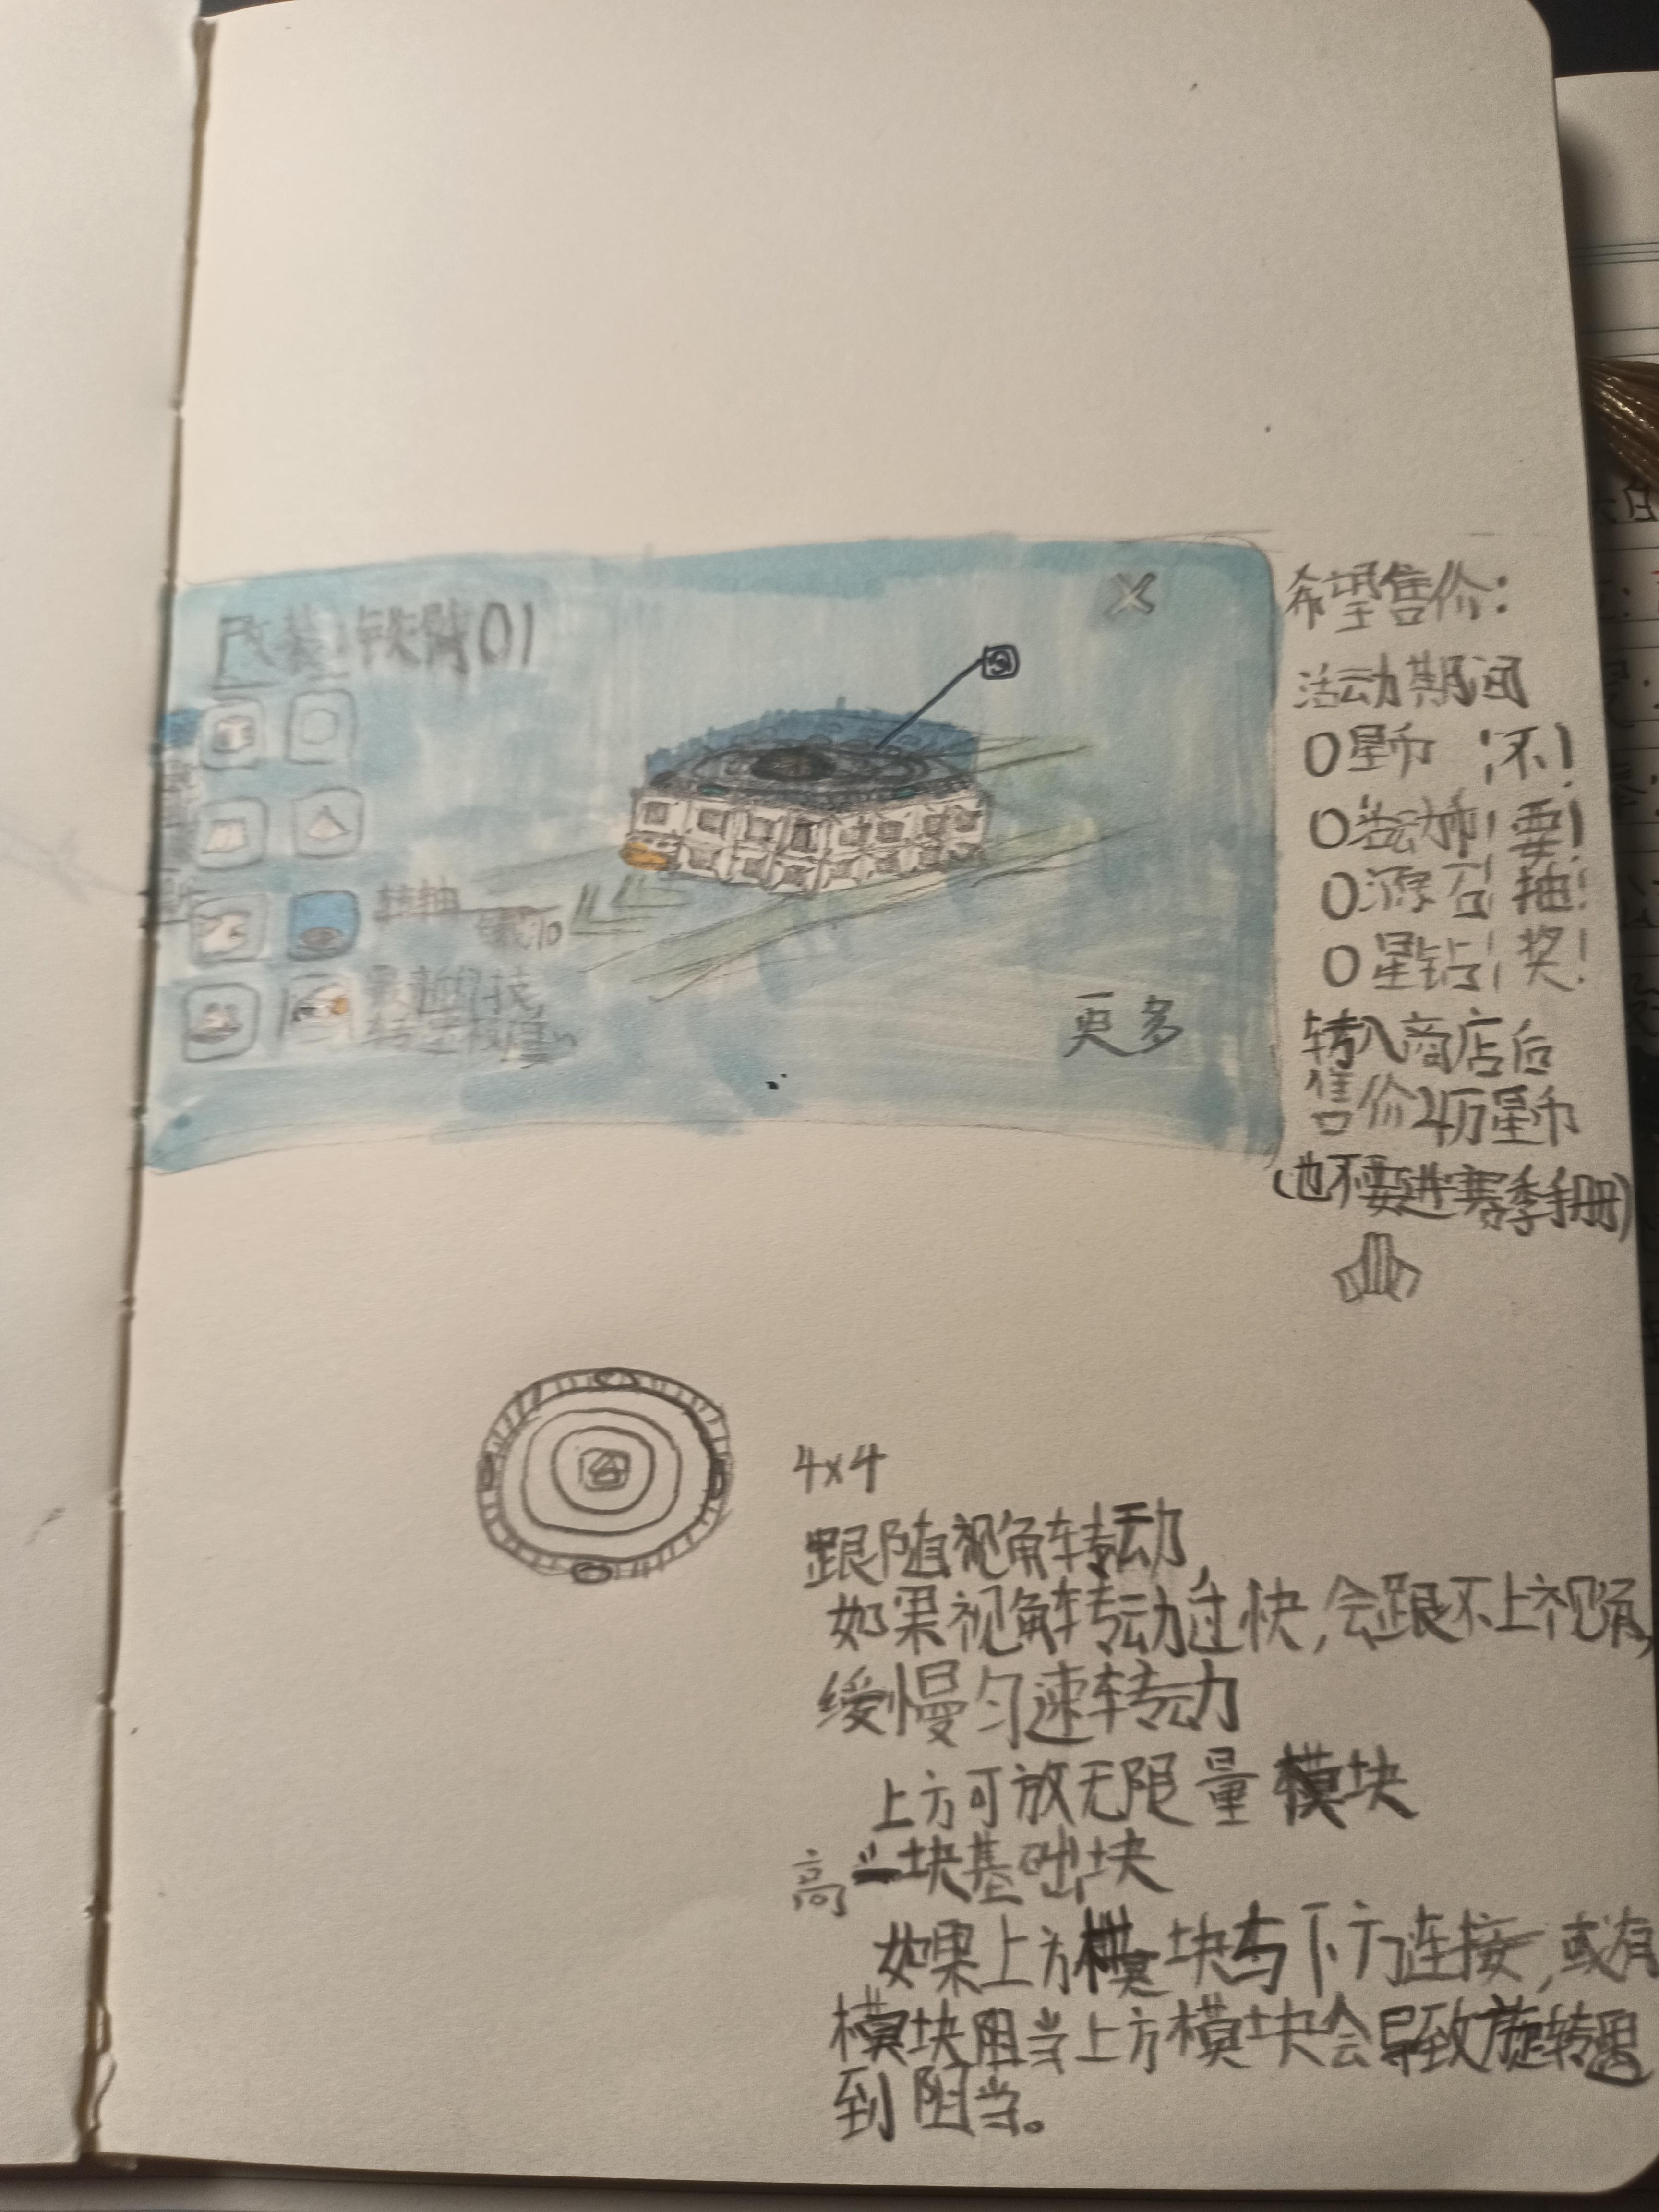 改装 铁臂01
转轴
更多
希望售价:
活动期间
0星币 不!
0活动币 要!
0源石 抽!
0星钻 奖!
转入商店后
售价4万星币
(也不要进赛季手册)
4x4
跟随视角转动,
如果视角转动过快,会跟不上视角,
缓慢匀速转动
上方可放无限量模块
高一块基础块
如果上方模块与下方连接,或有
模块阻当上方模块会导致旋转遇
到阻当。